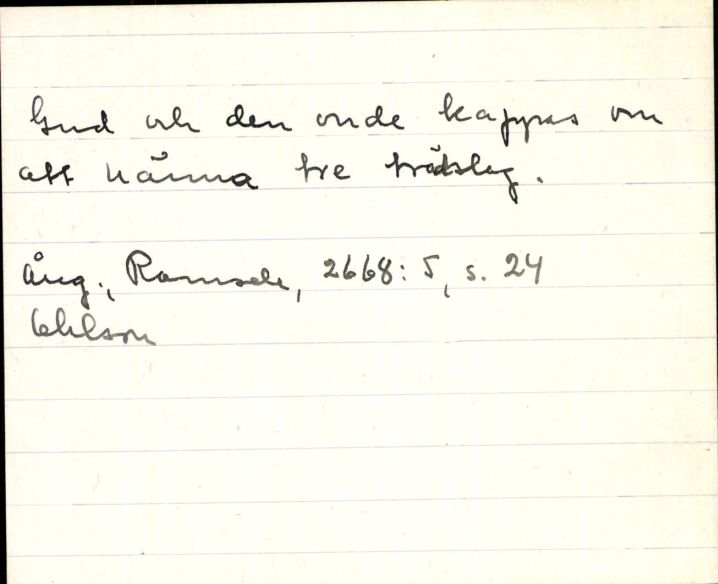 Gud och den onde kappas om
att nämna tre trädslag.
Ång., Ramsele, 2668: 5, s. 24